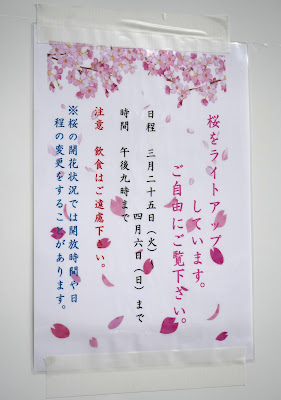 桜をライトアップ
しています。
ご自由にご覧下さい。
日程　三月二十五日（火）～
四月六日（日）まで
時間　午後九時まで
注意　飲食はご遠慮下さい。
※桜の開花状況では開放時間や日
程の変更をすることがあります。